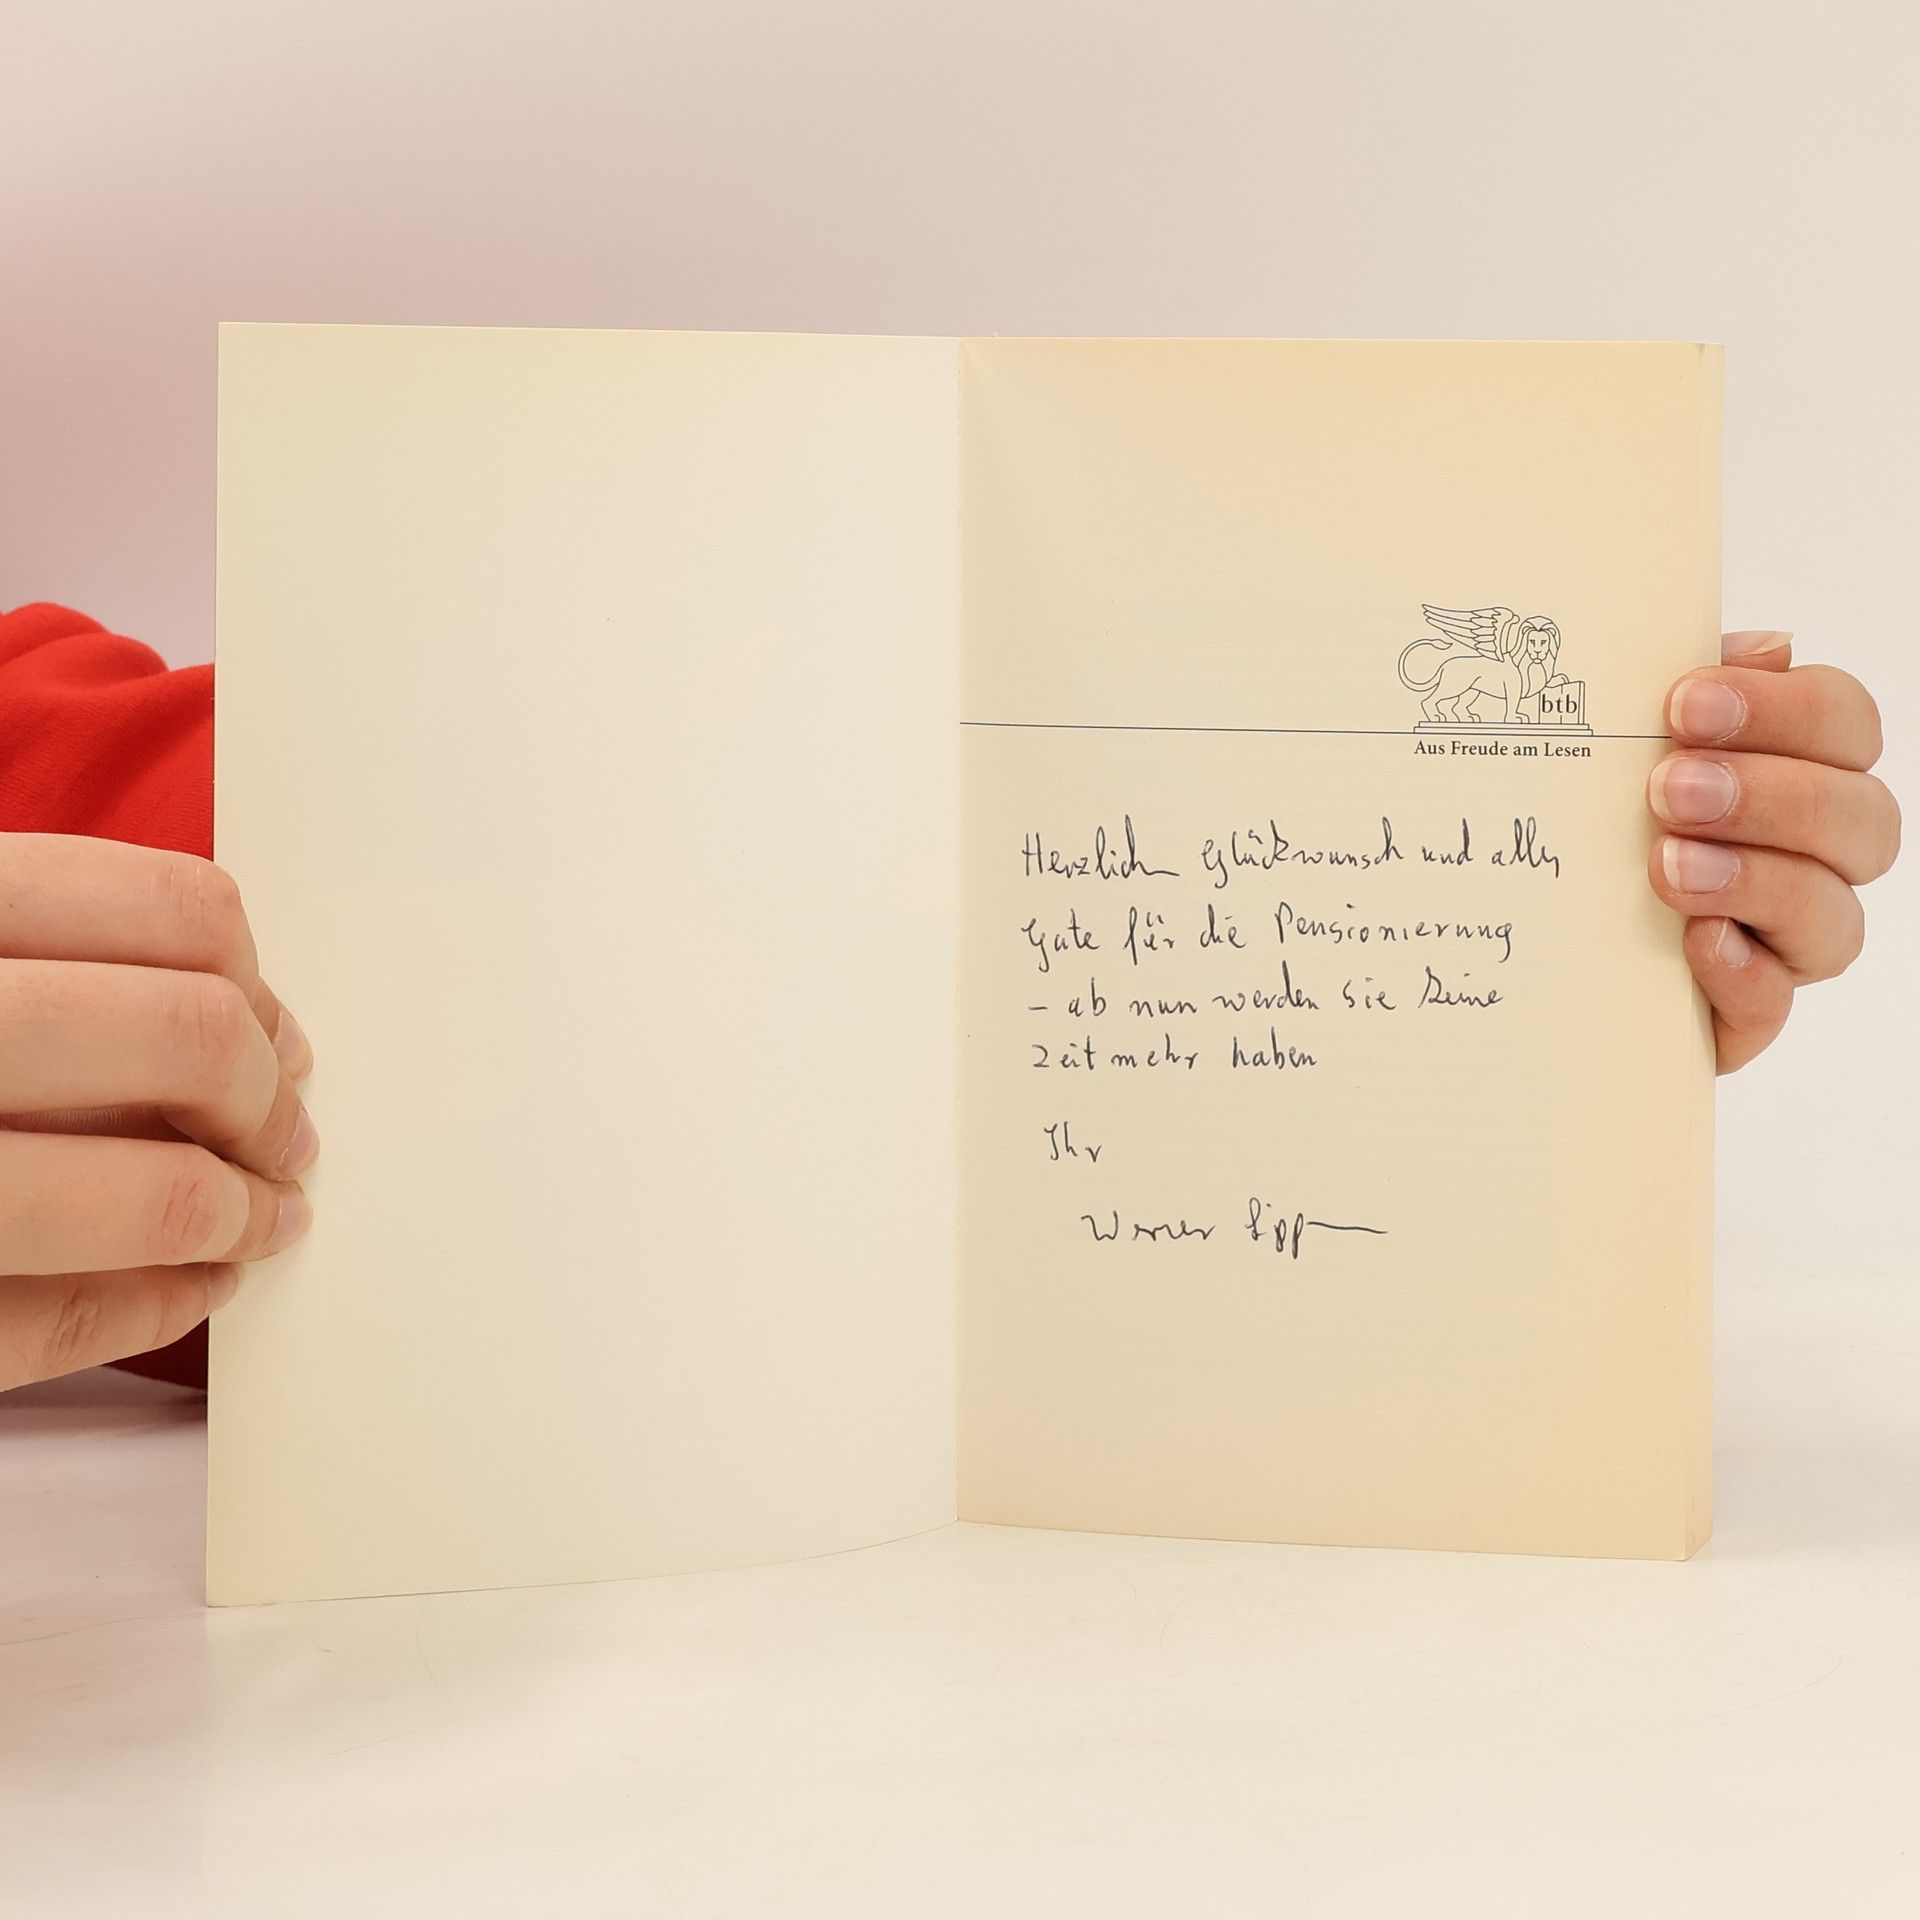 btb
Aus Freude am Lesen
Herzlich Glückwunsch und alles
Gute für die Pensionierung
– ab nun werden Sie keine
Zeit mehr haben
Ihr
Werner